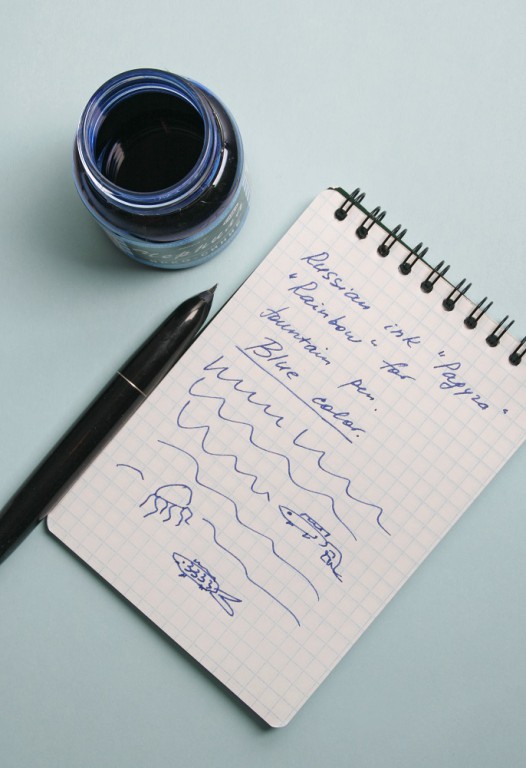 Russian ink "Радуга"
"Rainbow" for
fountain pen.
Blue color.